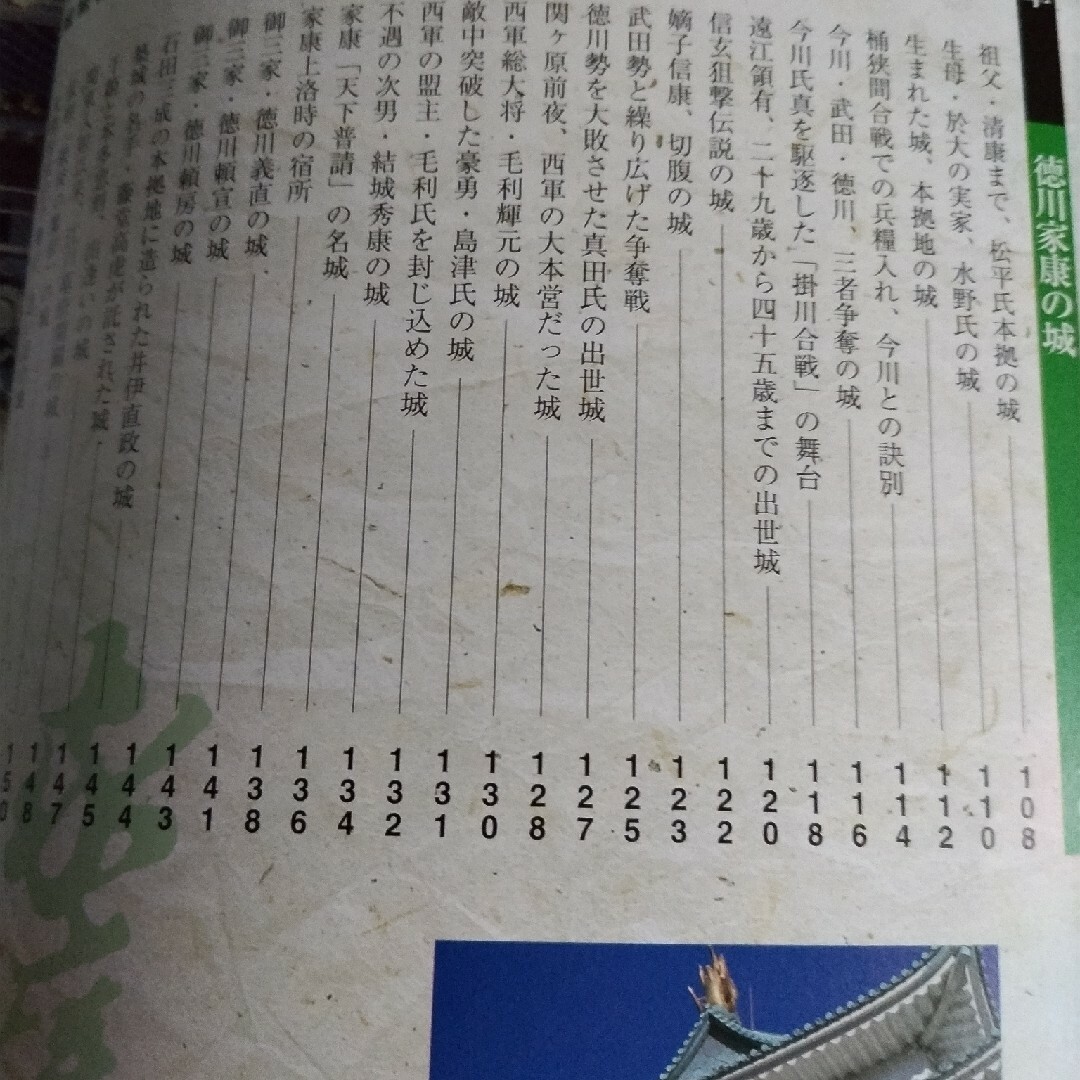 徳川家康の城
祖父・清康まで、松平氏本拠の城 108
生母・於大の実家、水野氏の城 110
生まれた城、本拠地の城 112
桶狭間合戦での兵糧入れ、今川との訣別 114
今川・武田・徳川、三者争奪の城 116
今川氏真を駆逐した「掛川合戦」の舞台 118
遠江領有、二十九歳から四十五歳までの出世城 120
信玄狙撃伝説の城 122
嫡子信康、切腹の城 123
武田勢と繰り広げた争奪戦 125
徳川勢を大敗させた真田氏の出世城 127
関ヶ原前夜、西軍の大本営だった城 128
西軍総大将・毛利輝元の城 130
敵中突破した豪勇・島津氏の城 131
西軍の盟主・毛利氏を封じ込めた城 132
不遇の次男・結城秀康の城 134
家康「天下普請」の名城 136
家康上洛時の宿所 138
御三家・徳川義直の城 141
御三家・徳川頼宣の城 143
御三家・徳川頼房の城 144
石田三成の本拠地に造られた井伊直政の城 145
築城の名手・藤堂高虎が託された城 147
148
150